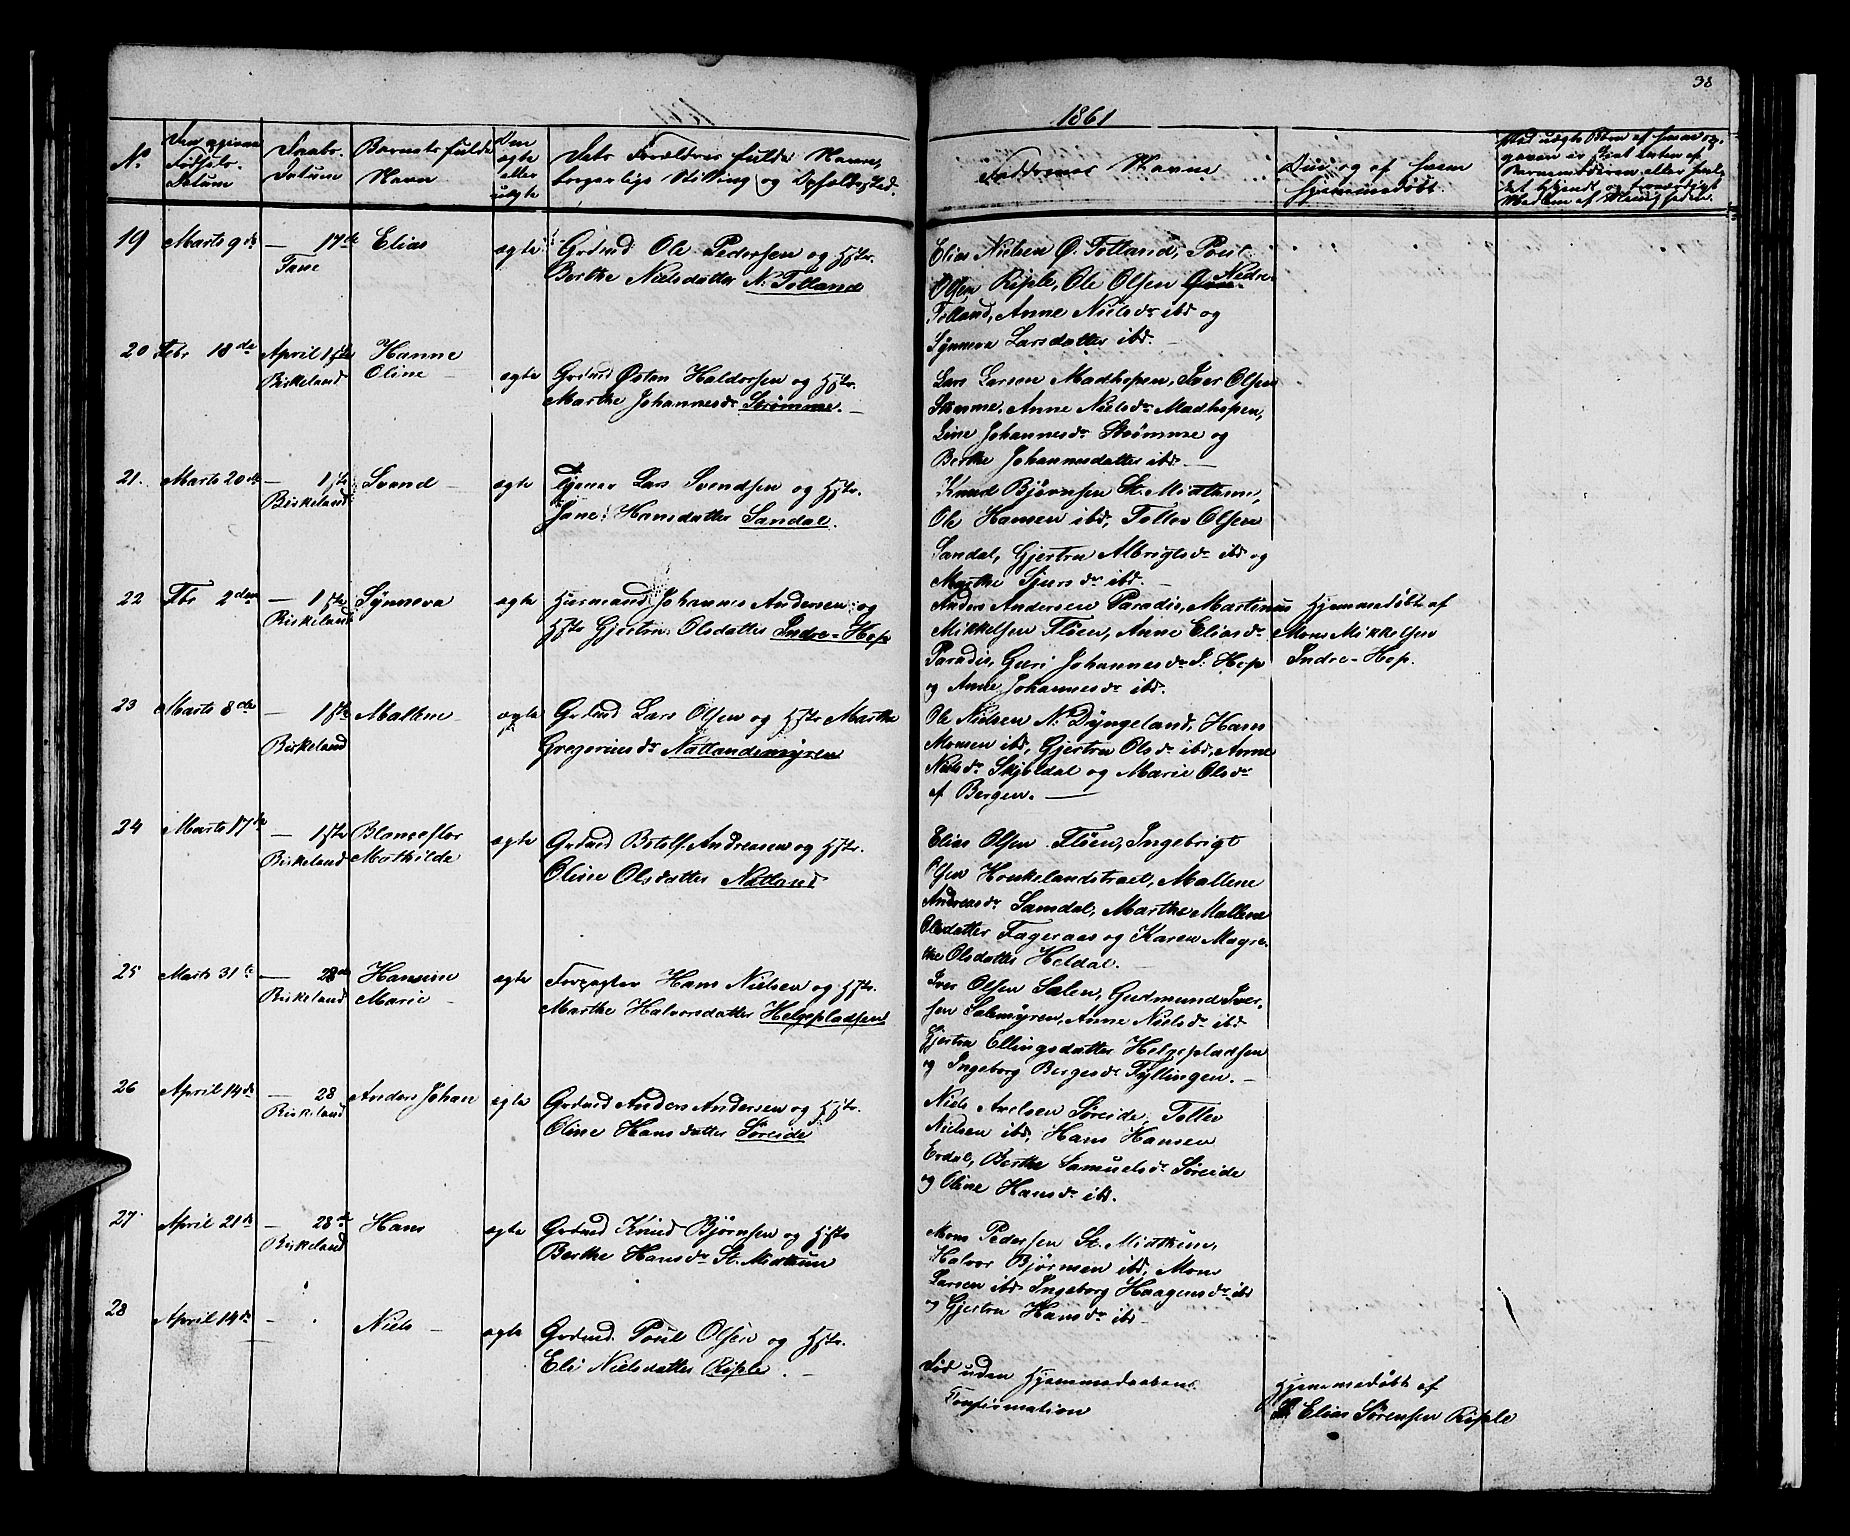 38
1861
No
Den opgivne
Fødsels-
Datum
Daabs-
Datum
Barnets fulde
Navn
Om
ægte
eller
uægte
Dets Forældres fulde Navn,
borgerlige Stilling og Opholdssted.
Faddrenes Navne
Om og af hvem
hjemmedøbt.
19
Marts 9de
— 17de
Fane
Elias
ægte
Grdmd Ole Pedersen og Hstr.
Berthe Nielsdatter N. Tolland
Elias Nielsen Ø. Tolland, Poul
Olsen Riple, Ole Olsen Nedre
Tolland, Anne Nielsdr ibd og
Synneva Larsdatter ibd.
20
Febr 18de
April 1ste
Birkeland
Hanne
Oline
ægte
Grdmd Østen Haldorsen og Hstr.
Marthe Johannesdr Strømme.
Lars Larsen Madhopen, Iver Olsen
Strømme, Anne Nielsdr Madhopen,
Line Johannesdr Strømme og
Berthe Johannesdatter ibd.
21.
Marts 20de
— 1ste
Birkeland
Svend
ægte
Tjener Lars Svendsen og Hstr.
Jane Hansdatter Sandal.
Knud Bjørnsen St. Midthun,
Ole Hansen ibd, Tollev Olsen
Sandal, Gjertru Albrigtsdr ibd og
Marthe Sjursdr ibd.
22
Fbr 2den
— 1ste
Birkeland
Synneva
ægte
Husmand Johannes Andersen og
Hstr Gjertru Olsdatter Indre-Hop
Anders Andersen Paradis, Martinus
Mikkelsen Fløen, Anne Eliasdr
Paradis, Guri Johannesdr I. Hop
og Anne Johannesdr ibd.
Hjemmedøbt af
Mons Mikkelsen
Indre-Hop.
23
Marts 8de
— 1ste
Birkeland
Malene
ægte
Grdmd Lars Olsen og Hstr Marthe
Gregoriusdr Natlandsmyren
Ole Nielsen N. Dyngeland, Hans
Monsen ibd, Gjertru Olsdr ibd, Anne
Nielsdr Skjoldal og Marie Olsdr
af Bergen.
24
Marts 17de
— 1ste
Birkeland
Blanceflor
Mathilde
ægte
Grdmd Botolf Andreasen og Hstr.
Oline Olsdatter Natland
Elias Olsen Fløen, Ingebrigt
Olsen Houkelandstræet, Mallene
Andreasdr Samdal, Marthe Mallene
Olsdatter Fageraas og Karen Magre-
the Olsdatter Heldal.
25
Marts 31te
— 28de
Birkeland
Hansine
Marie
ægte
Forpagter Hans Nielsen og Hstr.
Marthe Halvorsdatter Helgepladsen
Iver Olsen Salen, Gudmund Iver-
sen Salemyren, Anne Nielsdr ibd
Gjertru Ellingsdatter Helgepladsen
og Ingeborg Bergesdr Fyllingen.
26
April 14de
— 28
Birkeland
Anders Johan
ægte
Grdmd Anders Andersen og Hstr.
Oline Hansdatter Søreide
Niels Axelsen Søreide, Tollev
Nielsen ibd, Hans Hansen
Erdal, Berthe Samuelsdr Søreide
og Oline Hansdr ibd.
27
April 21de
— 28de
Birkeland
Hans
ægte
Grdmd Knud Bjørnsen og Hstr
Berthe Hansdr St. Midthun
Mons Pedersen St. Midthun,
Halvor Bjørnsen ibd, Mons
Larsen ibd Ingeborg Haagensdr ibd
og Gjertru Hansdr ibd
28
April 14de
—
Niels
ægte
Grdmd. Poul Olsen og Hstr.
Eli Nielsdatter Riple.
Død uden Hjemmedaabens
Confirmation
Hjemmedøbt af
Elias Sørensen Riple